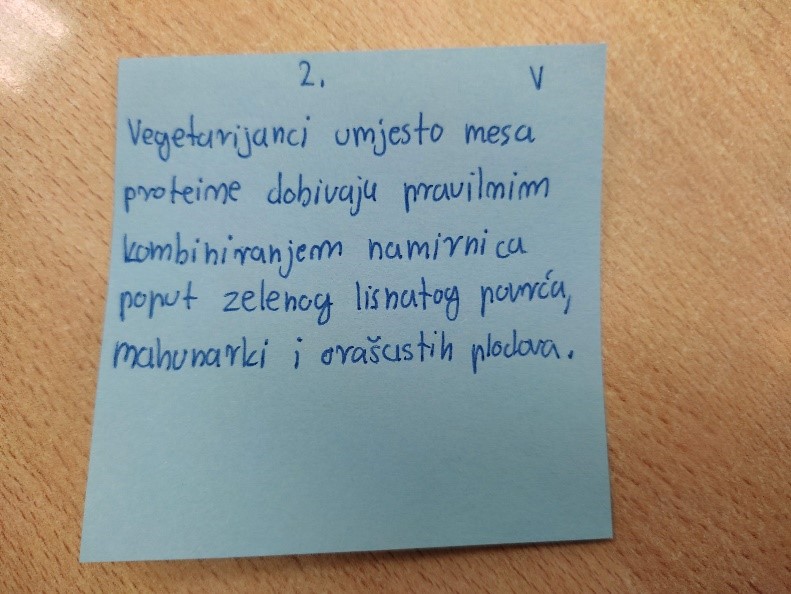 2. V
Vegetarijanci umjesto mesa
proteine dobivaju pravilnim
kombiniranjem namirnica
poput zelenog lisnatog povrća,
mahunarki i orašastih plodova.